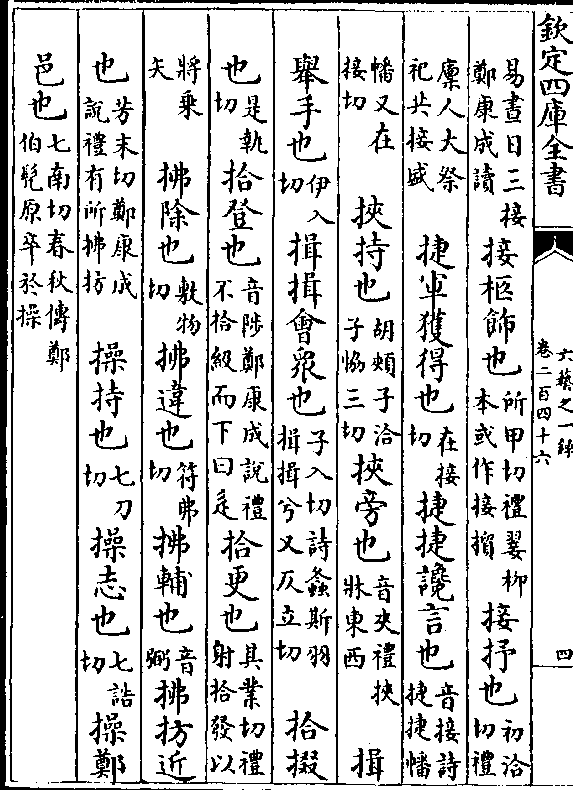 欽定四庫全書
六藝之一録
卷二百四十六
四
易晝日三接鄭康成讀接柩飾也所甲切禮翣柳本或作接接抒也初洽切禮
廪人大祭祀共接盛捷軍獲得也在接切捷捷讒言也音接詩捷捷幡
幡又在接切挾持也胡頰子洽子協三切挾旁也音夾禮挾牀東西揖
舉手也伊入切揖揖會衆也子入切詩螽斯羽揖揖兮又仄立切拾掇
也是執切拾登也音陟鄭康成說禮不拾級而下曰辵拾更也其業切禮射拾發以
將乘矢拂除也敷物切拂違也符弗切拂輔也音弼拂近
也芳末切鄭康成說禮有所拂操持也七刀切操志也七誥切操鄭
邑也七南切春秋傳鄭伯髡原卒於操